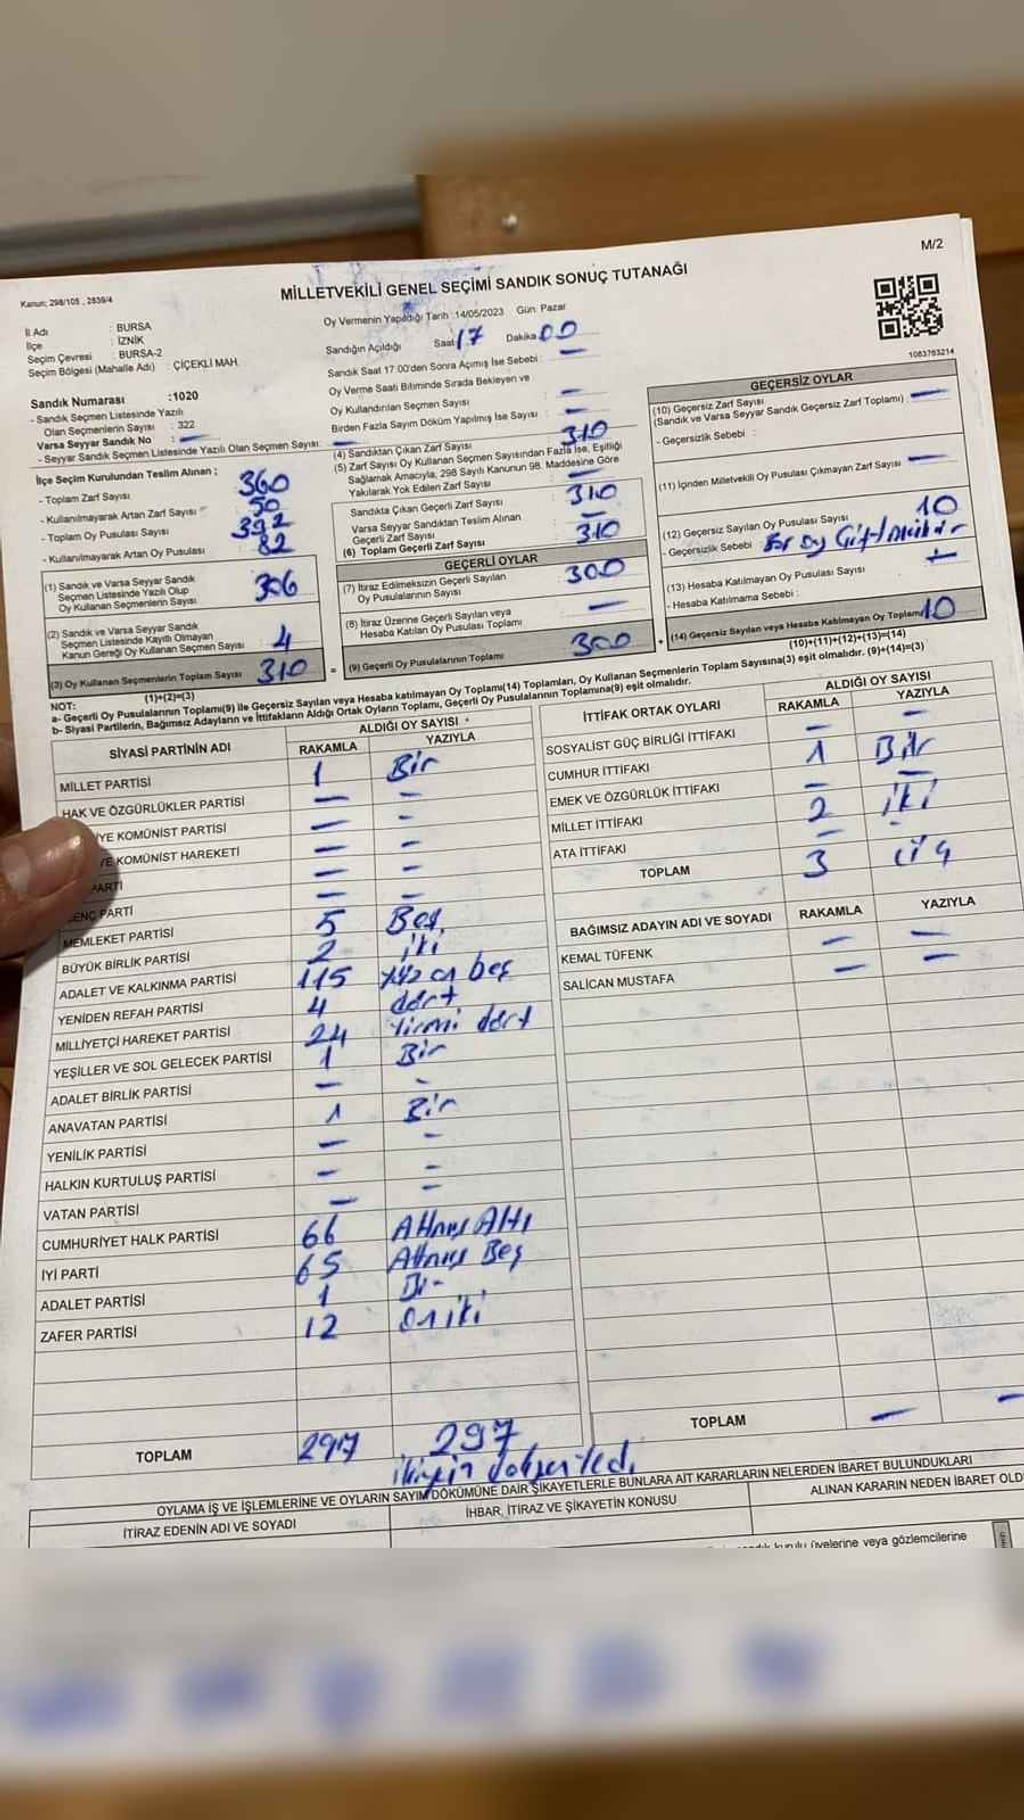 M/2
Kanun; 298/105 , 2839/4
MİLLETVEKİLİ GENEL SEÇİMİ SANDIK SONUÇ TUTANAĞI
İl Adı : BURSA
İlçe : İZNİK
Seçim Çevresi : BURSA-2
Seçim Bölgesi (Mahalle Adı) : ÇİÇEKLİ MAH.
Sandık Numarası :1020
- Sandık Seçmen Listesinde Yazılı
Olan Seçmenlerin Sayısı : 322
Varsa Seyyar Sandık No : —
- Seyyar Sandık Seçmen Listesinde Yazılı Olan Seçmen Sayısı: —
İlçe Seçim Kurulundan Teslim Alınan ;
- Toplam Zarf Sayısı 360
- Kullanılmayarak Artan Zarf Sayısı 50
- Toplam Oy Pusulası Sayısı 392
- Kullanılmayarak Artan Oy Pusulası 82
(1) Sandık ve Varsa Seyyar Sandık
Seçmen Listesinde Yazılı Olup
Oy Kullanan Seçmenlerin Sayısı 306
(2) Sandık ve Varsa Seyyar Sandık
Seçmen Listesinde Kayıtlı Olmayan
Kanun Gereği Oy Kullanan Seçmen Sayısı 4
(3) Oy Kullanan Seçmenlerin Toplam Sayısı 310
(1)+(2)=(3)
Oy Vermenin Yapıldığı Tarih :14/05/2023 Gün: Pazar
Sandığın Açıldığı Saat 17 Dakika 00
Sandık Saat 17:00'den Sonra Açımış İse Sebebi : —
Oy Verme Saati Bitiminde Sırada Bekleyen ve
Oy Kullandırılan Seçmen Sayısı : —
Birden Fazla Sayım Döküm Yapılmış İse Sayısı : —
(4) Sandıktan Çıkan Zarf Sayısı 310
(5) Zarf Sayısı Oy Kullanan Seçmen Sayısından Fazla İse, Eşitliği
Sağlamak Amacıyla, 298 Sayılı Kanunun 98. Maddesine Göre
Yakılarak Yok Edilen Zarf Sayısı : —
Sandıkta Çıkan Geçerli Zarf Sayısı : 310
Varsa Seyyar Sandıktan Teslim Alınan
Geçerli Zarf Sayısı : —
(6) Toplam Geçerli Zarf Sayısı : 310
GEÇERLİ OYLAR
(7) İtiraz Edilmeksizin Geçerli Sayılan
Oy Pusulalarının Sayısı : 300
(8) İtiraz Üzerine Geçerli Sayılan veya
Hesaba Katılan Oy Pusulası Toplamı : —
= (9) Geçerli Oy Pusulalarının Toplamı : 300 +
1083763214
GEÇERSİZ OYLAR
(10) Geçersiz Zarf Sayısı
(Sandık ve Varsa Seyyar Sandık Geçersiz Zarf Toplamı) : —
- Geçersizlik Sebebi :
(11) İçinden Milletvekili Oy Pusulası Çıkmayan Zarf Sayısı : —
(12) Geçersiz Sayılan Oy Pusulası Sayısı : 10
- Geçersizlik Sebebi :
(13) Hesaba Katılmayan Oy Pusulası Sayısı : —
- Hesaba Katılmama Sebebi :
(14) Geçersiz Sayılan veya Hesaba Katılmayan Oy Toplamı 10
(10)+(11)+(12)+(13)=(14)
NOT:
a- Geçerli Oy Pusulalarının Toplamı(9) ile Geçersiz Sayılan veya Hesaba katılmayan Oy Toplamı(14) Toplamları, Oy Kullanan Seçmenlerin Toplam Sayısına(3) eşit olmalıdır. (9)+(14)=(3)
b- Siyasi Partilerin, Bağımsız Adayların ve İttifakların Aldığı Ortak Oyların Toplamı, Geçerli Oy Pusulalarının Toplamına(9) eşit olmalıdır.
SİYASİ PARTİNİN ADI ALDIĞI OY SAYISI
RAKAMLA YAZIYLA
MİLLET PARTİSİ 1 Bir
HAK VE ÖZGÜRLÜKLER PARTİSİ — —
YE KOMÜNİST PARTİSİ — —
YE KOMÜNİST HAREKETİ — —
PARTİ — —
GENÇ PARTİ — —
MEMLEKET PARTİSİ 5 Beş
BÜYÜK BİRLİK PARTİSİ 2 iki
ADALET VE KALKINMA PARTİSİ 115 Yüz on beş
YENİDEN REFAH PARTİSİ 4 dört
MİLLİYETÇİ HAREKET PARTİSİ 24 Yirmi dört
YEŞİLLER VE SOL GELECEK PARTİSİ 1 Bir
ADALET BİRLİK PARTİSİ — —
ANAVATAN PARTİSİ 1 Bir
YENİLİK PARTİSİ — —
HALKIN KURTULUŞ PARTİSİ — —
VATAN PARTİSİ — —
CUMHURİYET HALK PARTİSİ 66 Altmış Altı
İYİ PARTİ 65 Altmış Beş
ADALET PARTİSİ 1 Bir
ZAFER PARTİSİ 12 On iki
TOPLAM 297 297
İTTİFAK ORTAK OYLARI ALDIĞI OY SAYISI
RAKAMLA YAZIYLA
SOSYALİST GÜÇ BİRLİĞİ İTTİFAKI — —
CUMHUR İTTİFAKI 1 Bir
EMEK VE ÖZGÜRLÜK İTTİFAKI — —
MİLLET İTTİFAKI 2 iki
ATA İTTİFAKI — —
TOPLAM 3 üç
BAĞIMSIZ ADAYIN ADI VE SOYADI RAKAMLA YAZIYLA
KEMAL TÜFENK — —
SALİCAN MUSTAFA — —
TOPLAM — —
OYLAMA İŞ VE İŞLEMLERİNE VE OYLARIN SAYIM DÖKÜMÜNE DAİR ŞİKAYETLERLE BUNLARA AİT KARARLARIN NELERDEN İBARET BULUNDUKLARI
İTİRAZ EDENİN ADI VE SOYADI İHBAR, İTİRAZ VE ŞİKAYETİN KONUSU ALINAN KARARIN NEDEN İBARET OLD
kurulu üyelerine veya gözlemcilerine